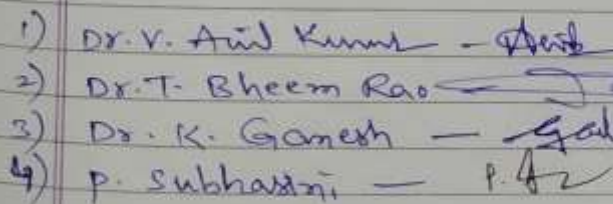 1) Dr. V. Anil Kumar -
2) Dr. T. Bheem Rao -
3) Dr. K. Ganesh -
4) P. Subhasini -